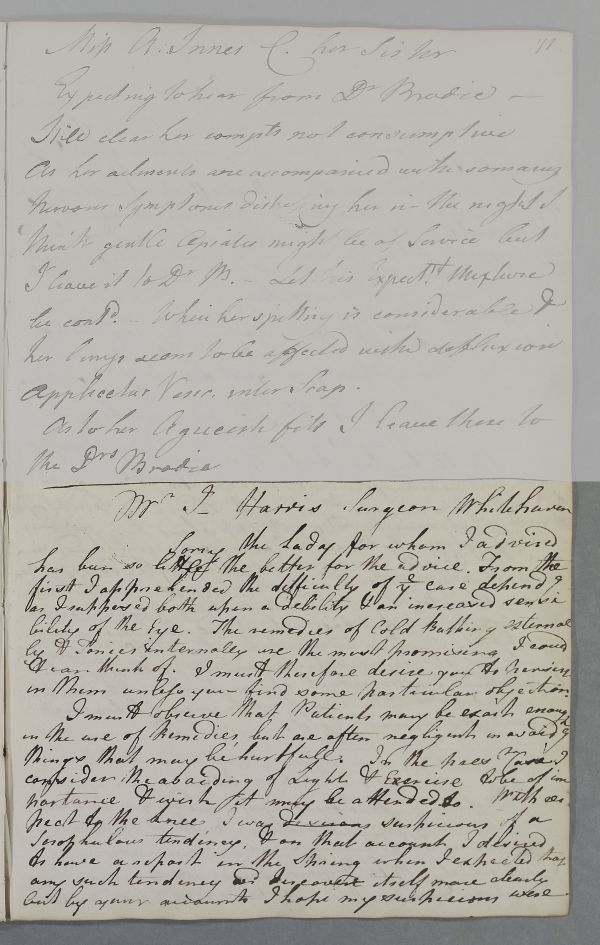 Miss A. Innes C. her Sister 11
Expecting to hear from Dr Brodie –
Still clear her compts not consumptive
As her ailments are accompanied with so many
Nervous Symptoms disturbing her in the night I
think gentle Opiates might be of Service but
I leave it to Dr B. – Let his Expectt. Mixture
be contd. – When her spitting is considerable &
her lungs seem to be affected with defluxion
Applicetur Vesic. inter Scap.
As to her Agueish fits I leave these to
the Drs Brodie
Mr J– Harris Surgeon Whitehaven
Sorry the Lady for whom I advised
has been so little the better for the advice. From the
first I apprehended the difficulty of ye case dependg
as I supposed both upon a debility & an increased sensi
bility of the Eye. The remedies of Cold Bathing external
ly & Tonics internally were the most promising I could
& can think of. & I must therefore desire you to persist
in them unless you find some particular objection.
I must observe that Patients may be exact enough
in the use of Remedies but are often negligent in avoidg
things that may be hurtfull. In the prest Case I
consider the avoiding of Light & Exercise to be of im
portance & wish it may be attended to. With res
pect to the knee I was suspicious of a
Scrophulous tendency, & on that account I desired
to have a report in the Spring when I expected that
any such tendency discover itself more clearly
but by your accounts I hope my suspicions were